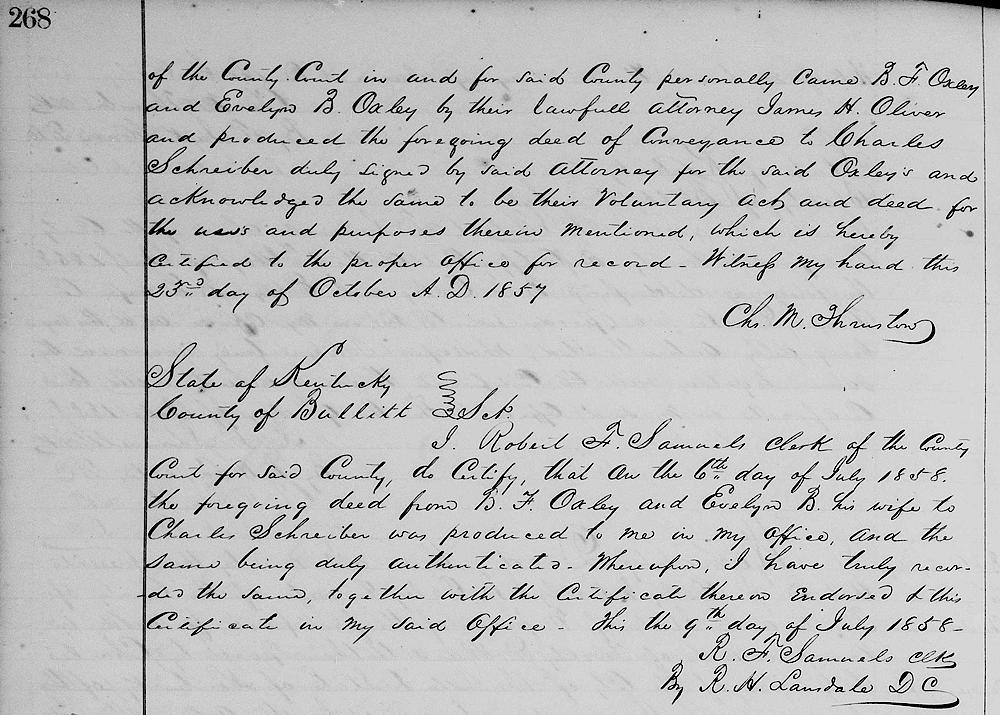 268
of the County Court in and for said County personally came B. F. Oxley
and Evelyn B. Oxley by their lawfull attorney James H. Oliver
and produced the foregoing deed of Conveyance to Charles
Schreiber duly signed by said attorney for the said Oxley's and
acknowledged the same to be their Voluntary act and deed for
the uses and purposes therein mentioned, which is hereby
Certified to the proper office for record - Witness my hand this
23rd day of October A. D. 1857
Chs. M. Thruston
State of Kentucky
County of Bullitt Sct.
I. Robert F. Samuels clerk of the County
Court for said County, do Certify, that on the 6th day of July 1858.
the foregoing deed from B. F. Oxley and Evelyn B. his wife to
Charles Schreiber was produced to me in my office, and the
same being duly authenticated - Whereupon, I have truly recor-
-ded the same, together with the Certificate thereon Endorsed & this
Certificate in my said office - This the 9th day of July 1858 -
R. F. Samuels clk
By R. H. Lansdale D C